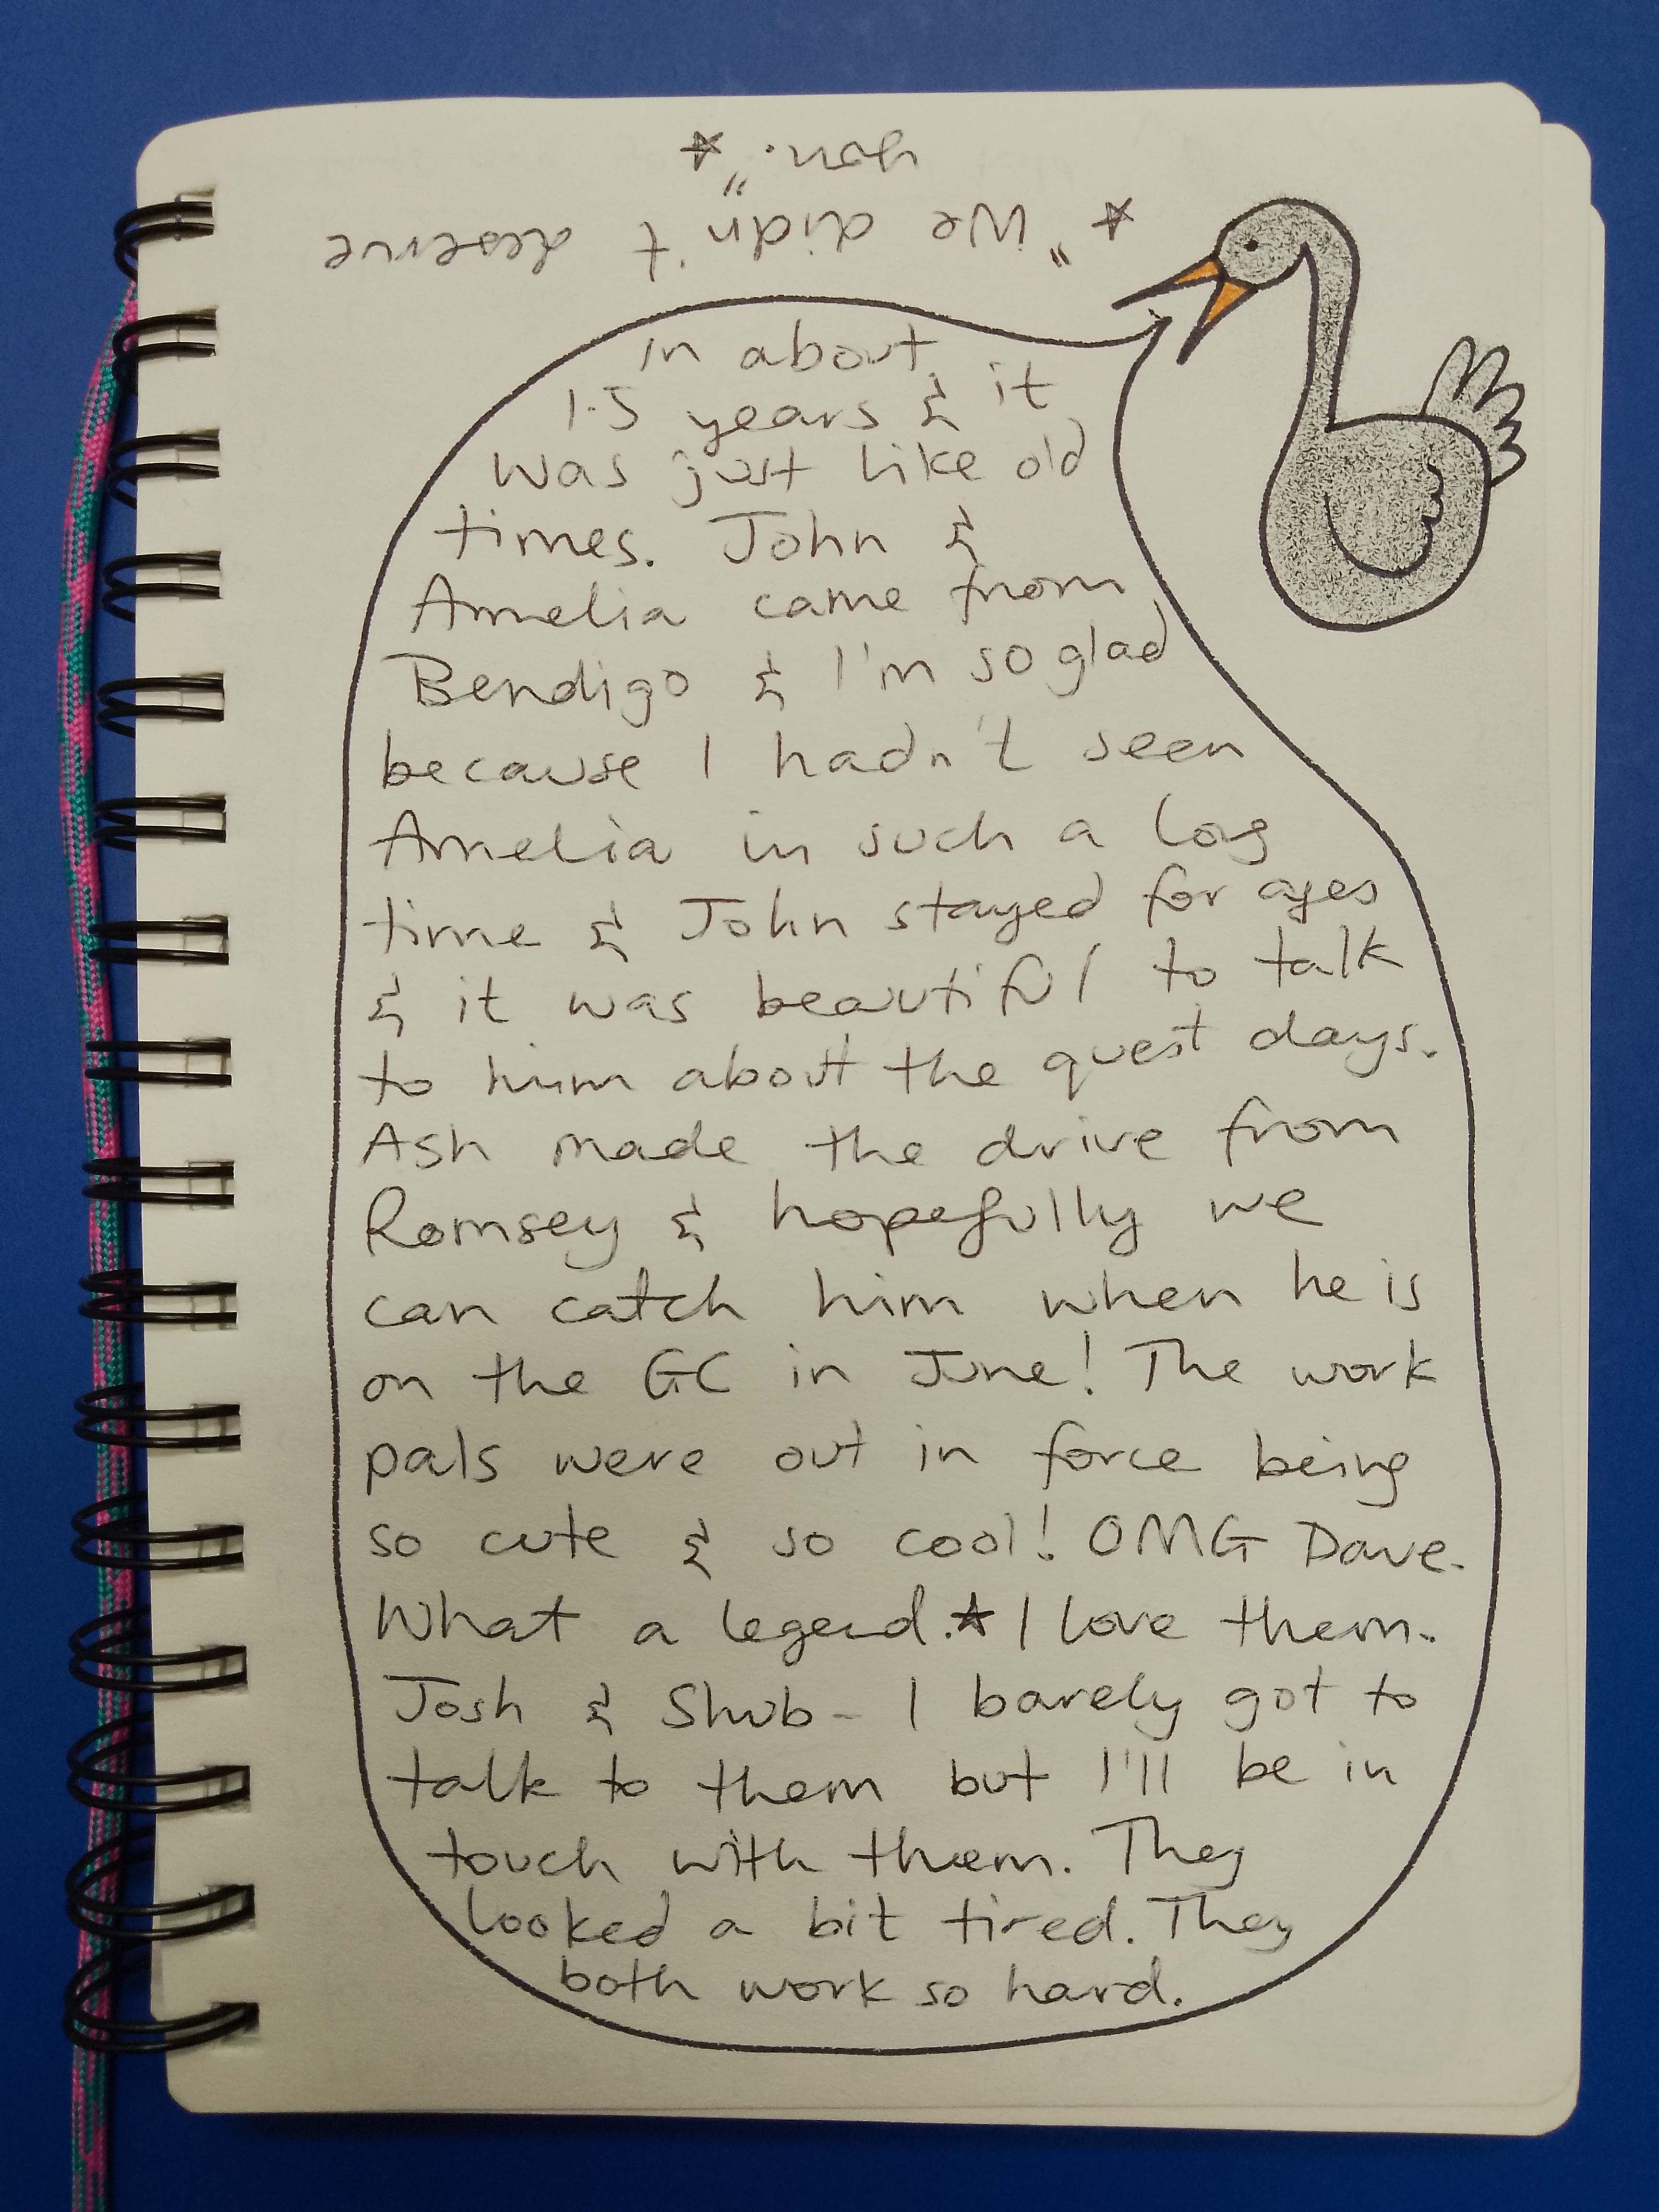 ★ "We didn't deserve
you." ★
in about
1.5 years & it
was just like old
times. John &
Amelia came from
Bendigo & I'm so glad
because I hadn't seen
Amelia in such a long
time & John stayed for ages
& it was beautiful to talk
to him about the quest days.
Ash made the drive from
Romsey & hopefully we
can catch him when he is
on the GC in June! The work
pals were out in force being
so cute & so cool! OMG Dave.
What a legend.★ I love them.
Josh & Shub - I barely got to
talk to them but I'll be in
touch with them. They
looked a bit tired. They
both work so hard.